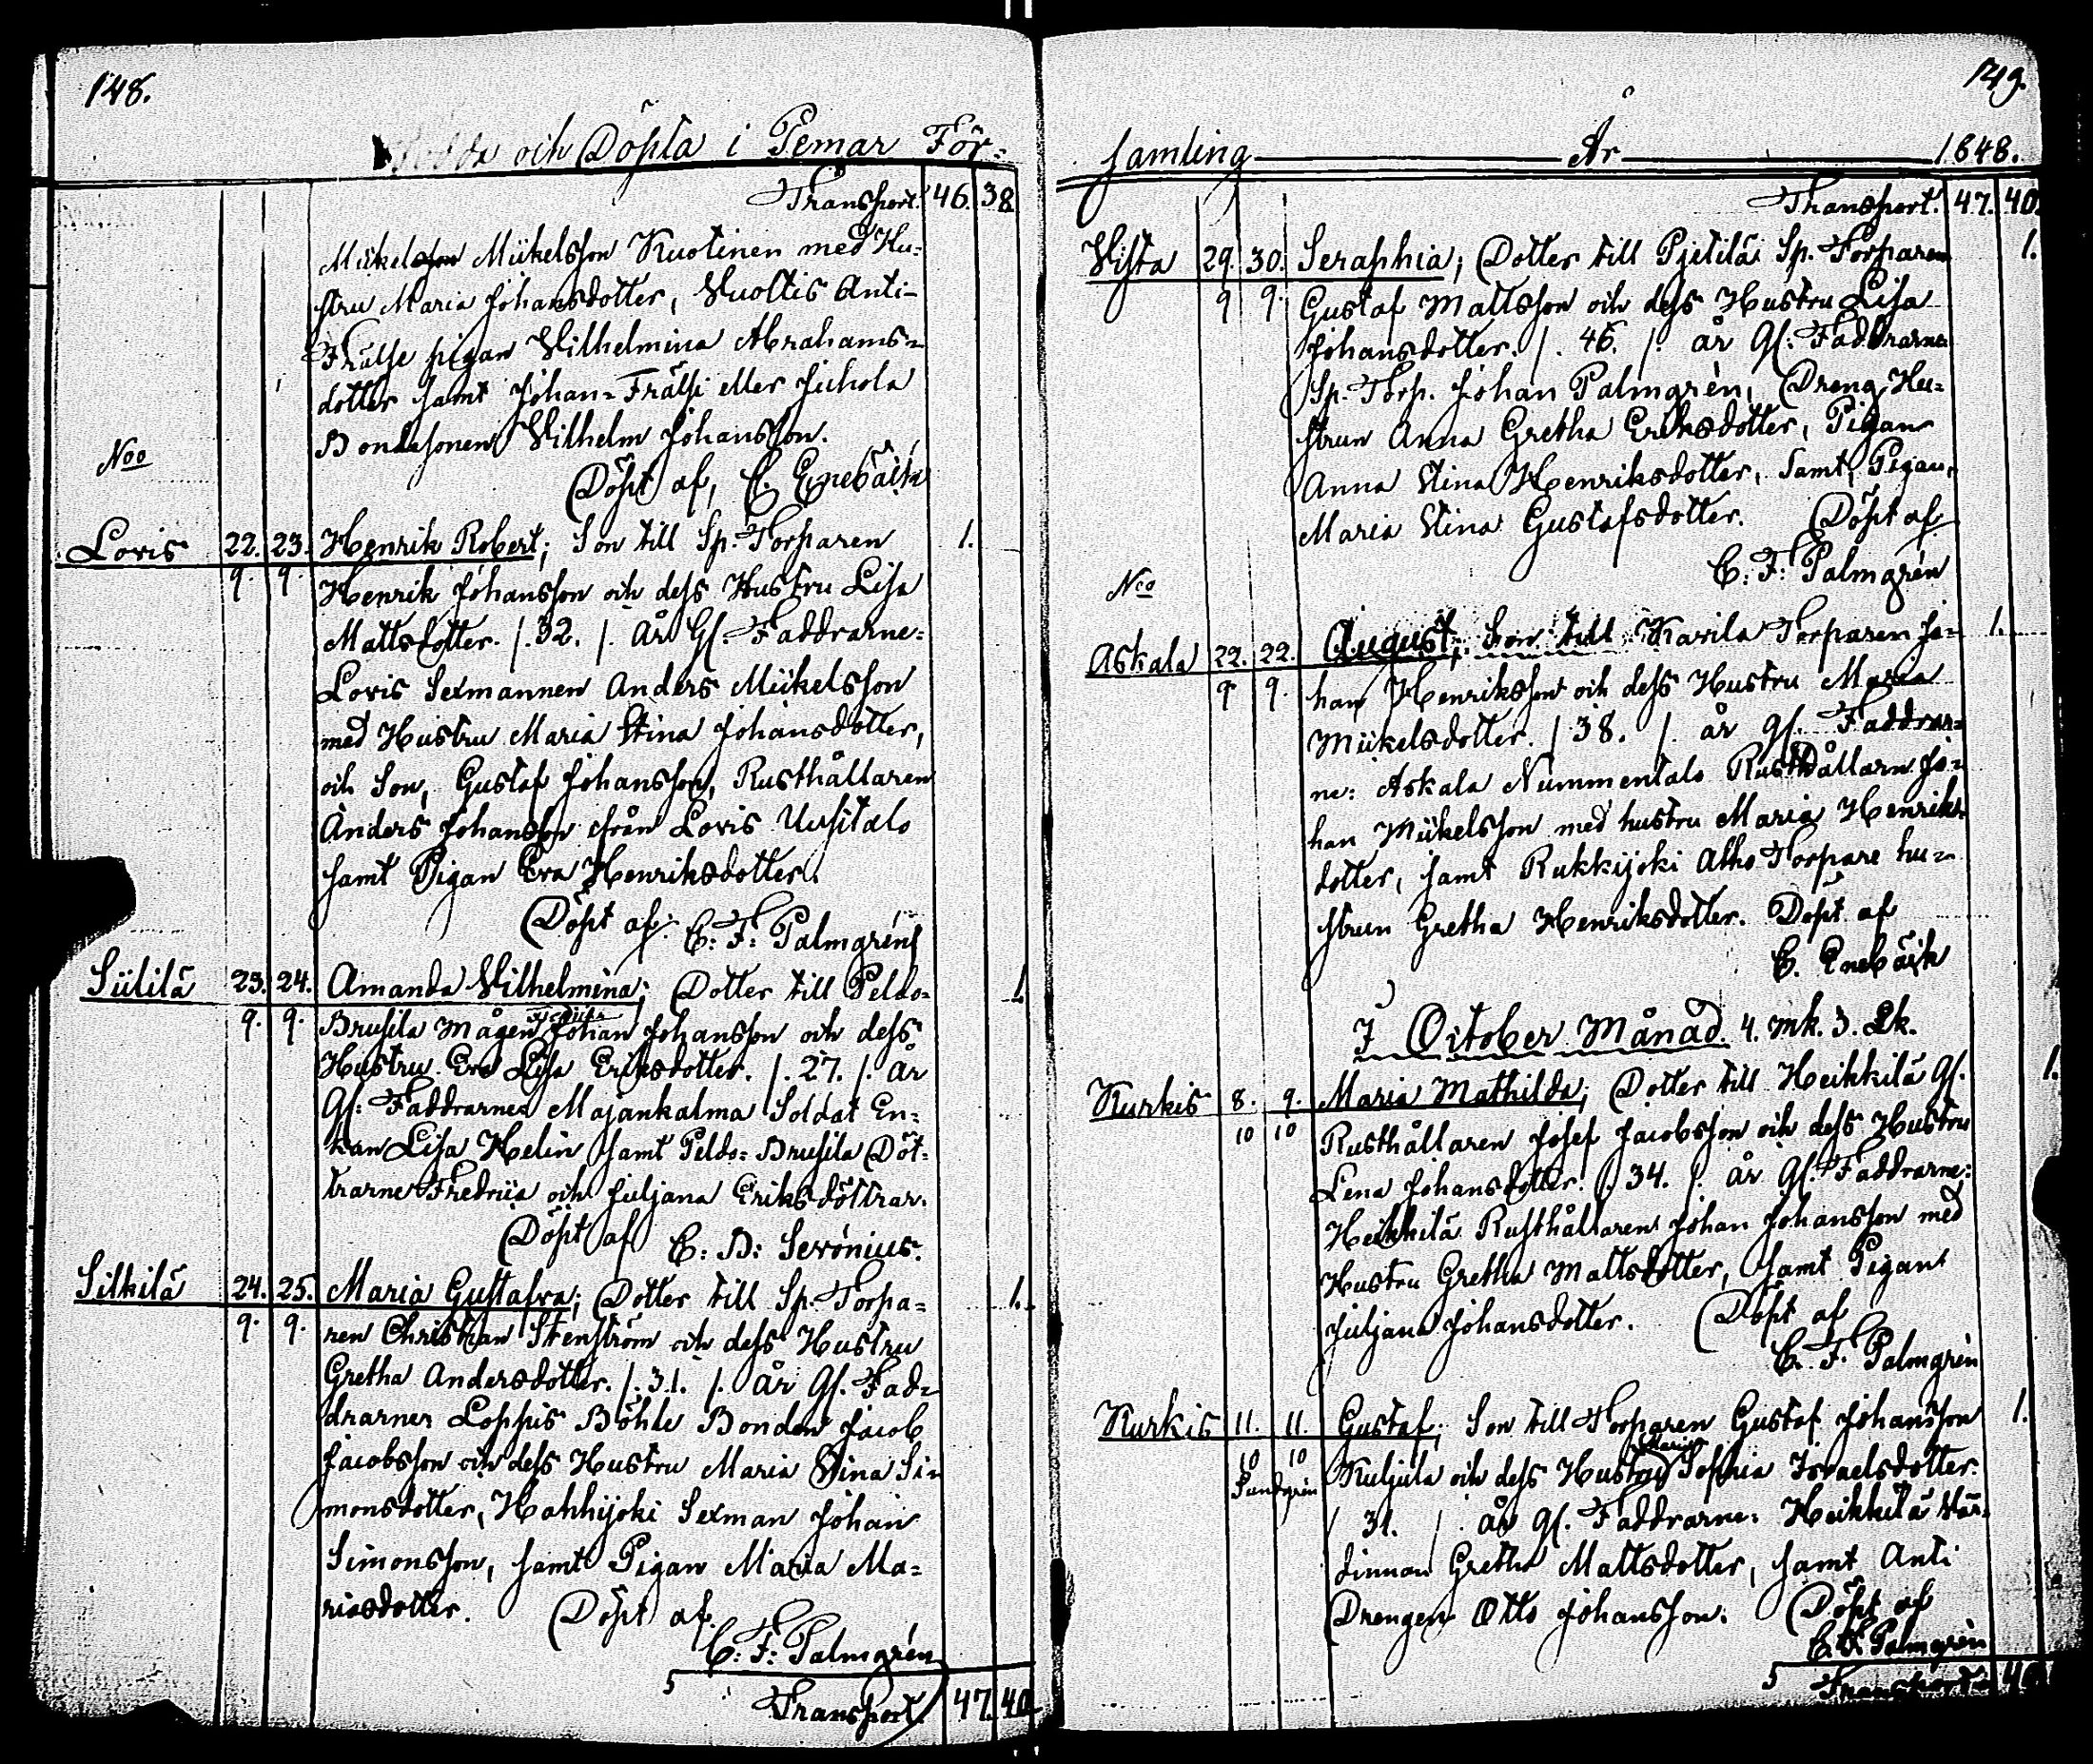 148.
Födda och Döpta i Pemar För-
Transport. 46. 38
Mickelsson Mickelsson Kuotinen med Hu-
stru Maria Johansdotter, Vuoltis Anti-
Frälse pigan Wilhelmina Abrahams-
dotter samt Johan-Frälsi eller Juhola
Bondesonen Wilhelm Johansson.
Noo
Döpt af, C. Enebäck
Loris 22. 23. Henrik Robert; Son till Sp. Torparen 1.
9. 9. Henrik Johansson och dess Hustru Lisa
Mattsdotter. /. 32. /. År Gl. Faddrarne:
Loris Sexmannen Anders Mickelsson
med Hustru Maria Stina Johansdotter,
och Son, Gustaf Johansson, Rusthållaren
Anders Johansson ifrån Loris Uusitalo
samt Pigan Eva Henriksdotter.
Döpt af: C: F: Palmgrén
Siitilä 23. 24. Amanda Wilhelmina; Dotter till Peldo- 1
9. 9. Brusila Mågen Johan Johansson och dess
Hustru Eva Lisa Eriksdotter. /. 27. /. År
Gl: Faddrarne: Majankalma Soldat En-
kan Lisa Helin samt Peldo-Brusila Döt-
trarne Fredrica och Juljana Eriksdöttrar.
Döpt af C: D: Serónius.
Silkilä 24. 25. Maria Gustafva; Dotter till Sp. Torpa- 1.
9. 9. ren Christian Stenström och dess Hustru
Gretha Andersdotter. /. 31. /. År Gl. Fad-
drarne: Loppis Böhle Bonden Jacob
Jacobsson och dess Hustru Maria Stina Si-
monsdotter, Hahhijoki Sexman Johan
Simonsson, samt Pigan Maria Ma-
riasdotter. Döpt af
C: F: Palmgrén
5
Transport. 47. 40
149.
samling År 1848.
Transport. 47. 40.
Vista 29. 30. Seraphia; Dotter till Pjetilä Sp. Torparen 1.
9 9. Gustaf Mattsson och dess Hustru Lisa
Johansdotter. /. 46. /. år Gl: Faddrarne
Sp. Torp. Johan Palmgrèn, Dreng Hu-
strun Anna Gretha Eriksdotter, Pigan
Anna Stina Henriksdotter, samt, Pigan,
Maria Stina Gustafsdotter. Döpt af
C: F: Palmgrén
Noo
Askala 22. 22. August; Son till Karila Torparen Jo- 1.
9 9. han Henriksson och dess Hustru Maria
Mickelsdotter. / 38. /. år gl. Faddrar-
ne: Askala Nummentalo Rusthållarn Jo-
han Mickelsson med hustru Maria Henriks-
dotter, samt Rukkijoki Alho Torpare hu-
strun Gretha Henriksdotter. Döpt af
C. Enebäck
I October Månad. 4. Mk. 3. Qk.
Kurkis 8. 9. Maria Mathilda; Dotter till Heikkilä Gl. 1.
10 10 Rusthållaren Josef Jacobsson och dess Hustru
Lena Johansdotter. /. 34. /. år gl. Faddrarne:
Heikkilä Rusthållaren Johan Johansson med
Hustru Gretha Mattsdotter, samt Pigan
Juljana Johansdotter. Döpt af
C. F. Palmgrén
Kurkis 11. 11. Gustaf; Son till Torparen Gustaf Johansson 1.
Maria
10 10 Kuljula och dess Hustru Sophia Israelsdotter.
/ 31. /. år gl. Faddrarne: Heikkilä Vär-
dinnan Gretha Mattsdotter, samt Anti
Drengen Otto Johansson. Döpt af
C. F. Palmgrén
5
Transport